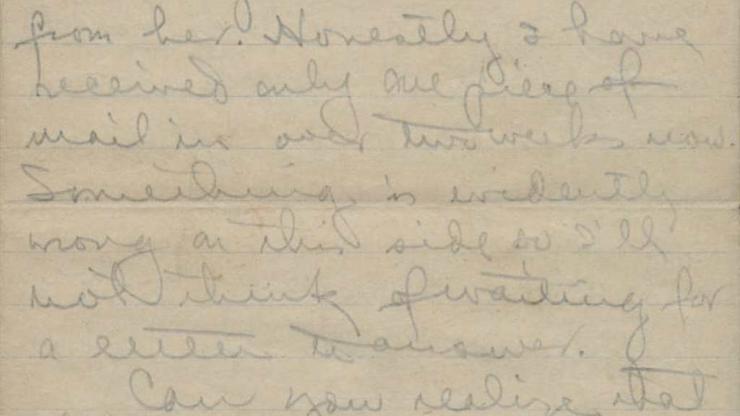 from her. Honestly I have
received only one piece of
mail in over two weeks now.
Something is evidently
wrong on this side so I'll
not think of waiting for
a letter to answer.
Can you realize that